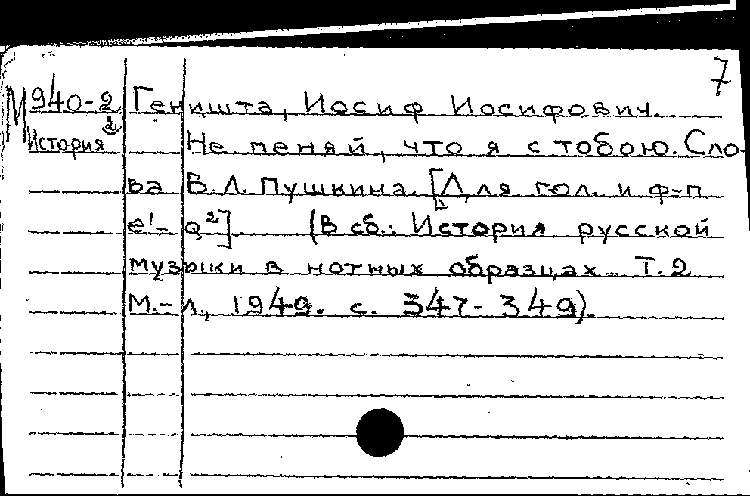 7
М940-2 Геништа, Иосиф Иосифович.
История Не пеняй, что я с тобою. Сло-
ва В.Л. Пушкина. [Для гол. и ф-п
e¹-a²]. (В сб.: История русской
музыки в нотных образцах. Т.2
М.-Л., 1949. с. 347-349).